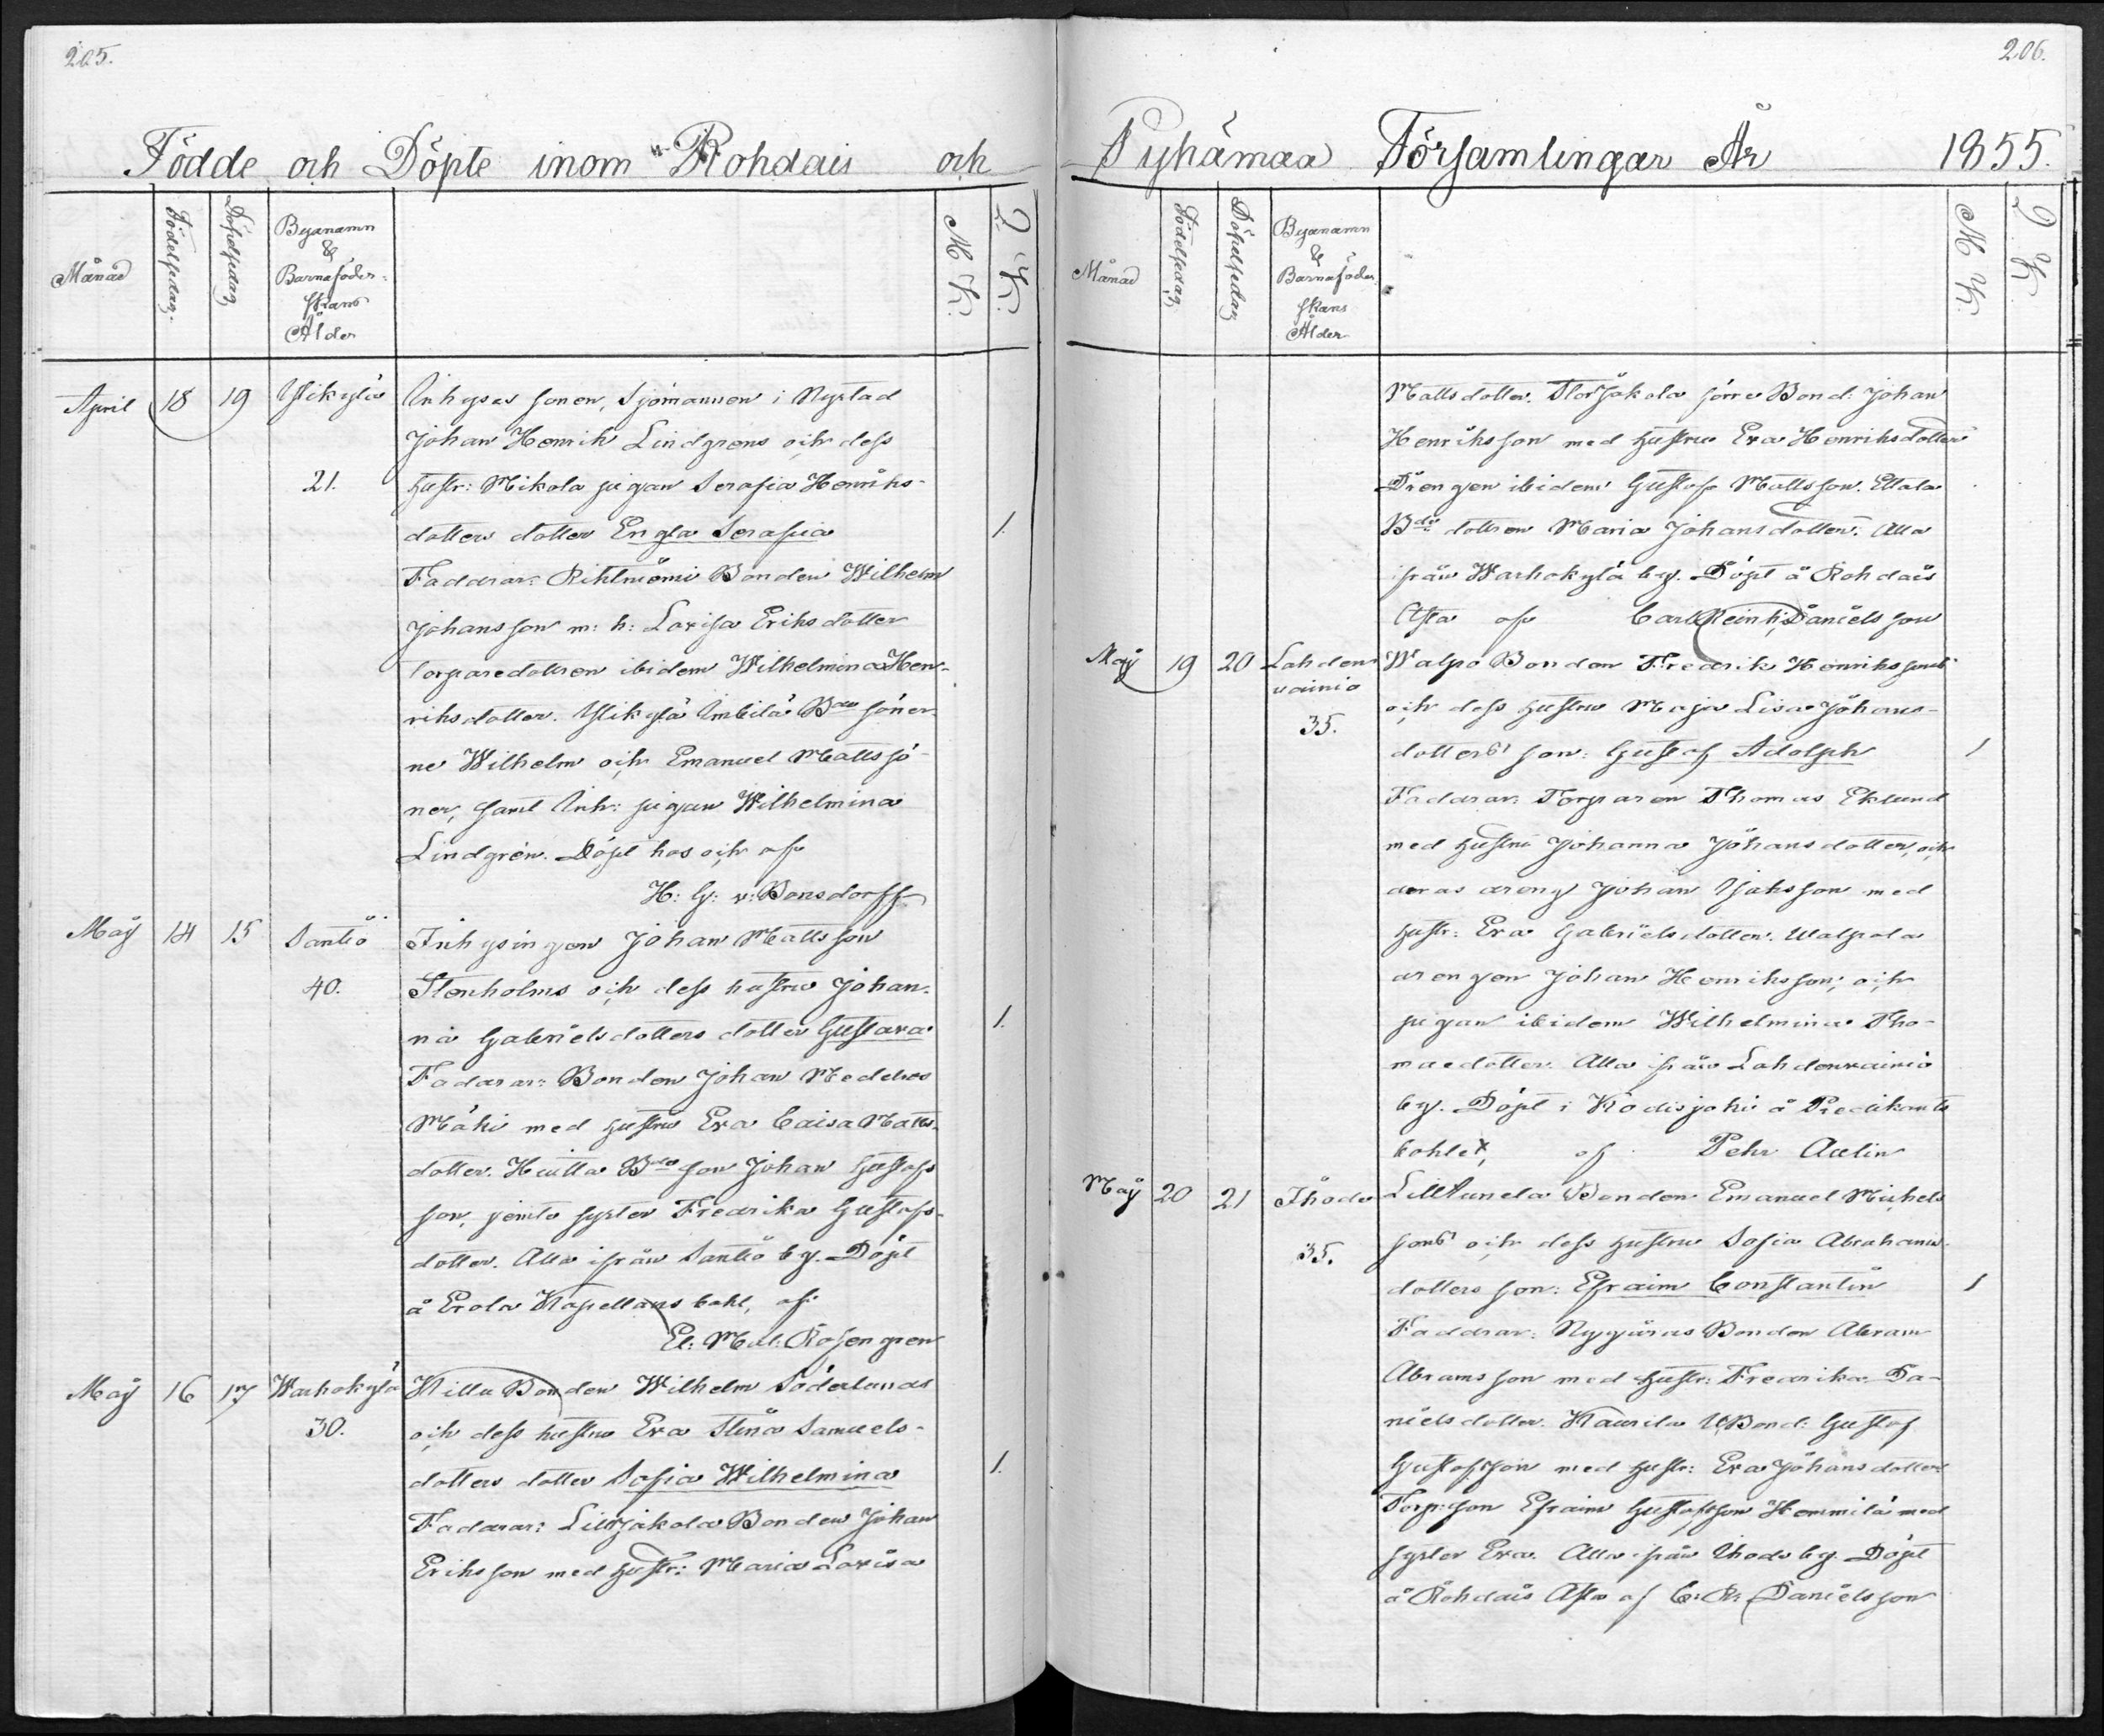 205.
Födde och Döpte inom Rohdais och
Månad
Födelsedag.
Döpelsedag
Byanamn
&
Barnaföder-
skans
Ålder
M. K.
Q. K.
April 18 19 Ylikylä Inhyses sonen, Sjömannen i Nystad
Johan Henrik Lindgrens och dess
21. hustr: Mikola pigan Serafia Henriks-
dotters dotter Engla Serafia 1.
Faddrar: Rihtniömi Bonden Wilhelm
Johansson m: h: Lovisa Eriksdotter
Torparedottren ibidem Wilhelmina Hen-
riksdotter. Ylikylä Imbilä söner-
ne Wilhelm och Emanuel Mattssö-
ner, samt Inh: pigan Wilhelmina
Lindgrén. Döpt hos och af
H: G: v: Bonsdorff
Maij 14 15 Santio Inhysingen Johan Mattsson
40. Stenholms och dess hustru Johan-
na Gabrielsdotters dotter Gustava 1.
Faddrar: Bonden Johan
Mäki med hustru Eva Caisa Matts-
dotter. Huitta son Johan Gustafs
son, jemte syster Fredrika Gustafs-
dotter. Alla ifrån Santio by. Döpt
å Erola Kapellans bohl, af
El: Mat: Rosengren
Maij 16 17 Warhokylä Killu Bonden Wilhelm Söderlunds
30. och dess hustru Eva Stina Samuels-
dotters dotter Sofia Wilhelmina 1.
Faddrar: Lilljakola Bonden Johan
Eriksson med hustr: Maria Lovisa
206.
Pyhämaa Församlingar År 1855.
Månad
Födelsedag
Döpelsedag
Byanamn
&
Barnaföder
skans
Ålder
M. K.
Q. K.
Mattsdotter. Storjakola förre Bond: Johan
Henriksson med hustru Eva Henriksdotter
Drengen ibidem Gustaf Mattsson. Ettala
Bde dottren Maria Johansdotter. Alla
ifrån Warhokylä by. Döpt å Rohdais
Asta af Carl Reinh: Danielsson
Maij 19 20 Lahden- Walpo Bonden Fredrik Henrikssons
vainio
och dess hustru Maja Lisa Johans-
35.
dotters son: Gustaf Adolph 1
Faddrar: Torparen Thomas Eklund
med hustru Johanna Johansdotter, och
deras dreng Johan Isaksson med
hustr: Eva Gabrielsdotter. Walpola
drengen Johan Henriksson, och
pigan ibidem Wilhelmina Tho-
maedotter. Alla ifrån Lahdenvainio
by. Döpt i Kodisjoki å Predikants
bohlet, af Pehr Aulin
Maij 20 21 Ihode Lilltunela Bonden Emanuel Michels
35. sons och dess hustru Sofia Abrahams-
dotters son: Efraim Constantin 1
Faddrar: Nygårds Bonden Abram
Abramsson med hustr: Fredrika Da-
nielsdotter. Kaurila Bond: Gustaf
Gustafsson med hustr: Eva Johansdotter
Torp: son Efraim Gustafsson Hemmilä med
syster Eva. Alla ifrån Ihode by. Döpt
å Rohdais Asta af C: R: Danielsson